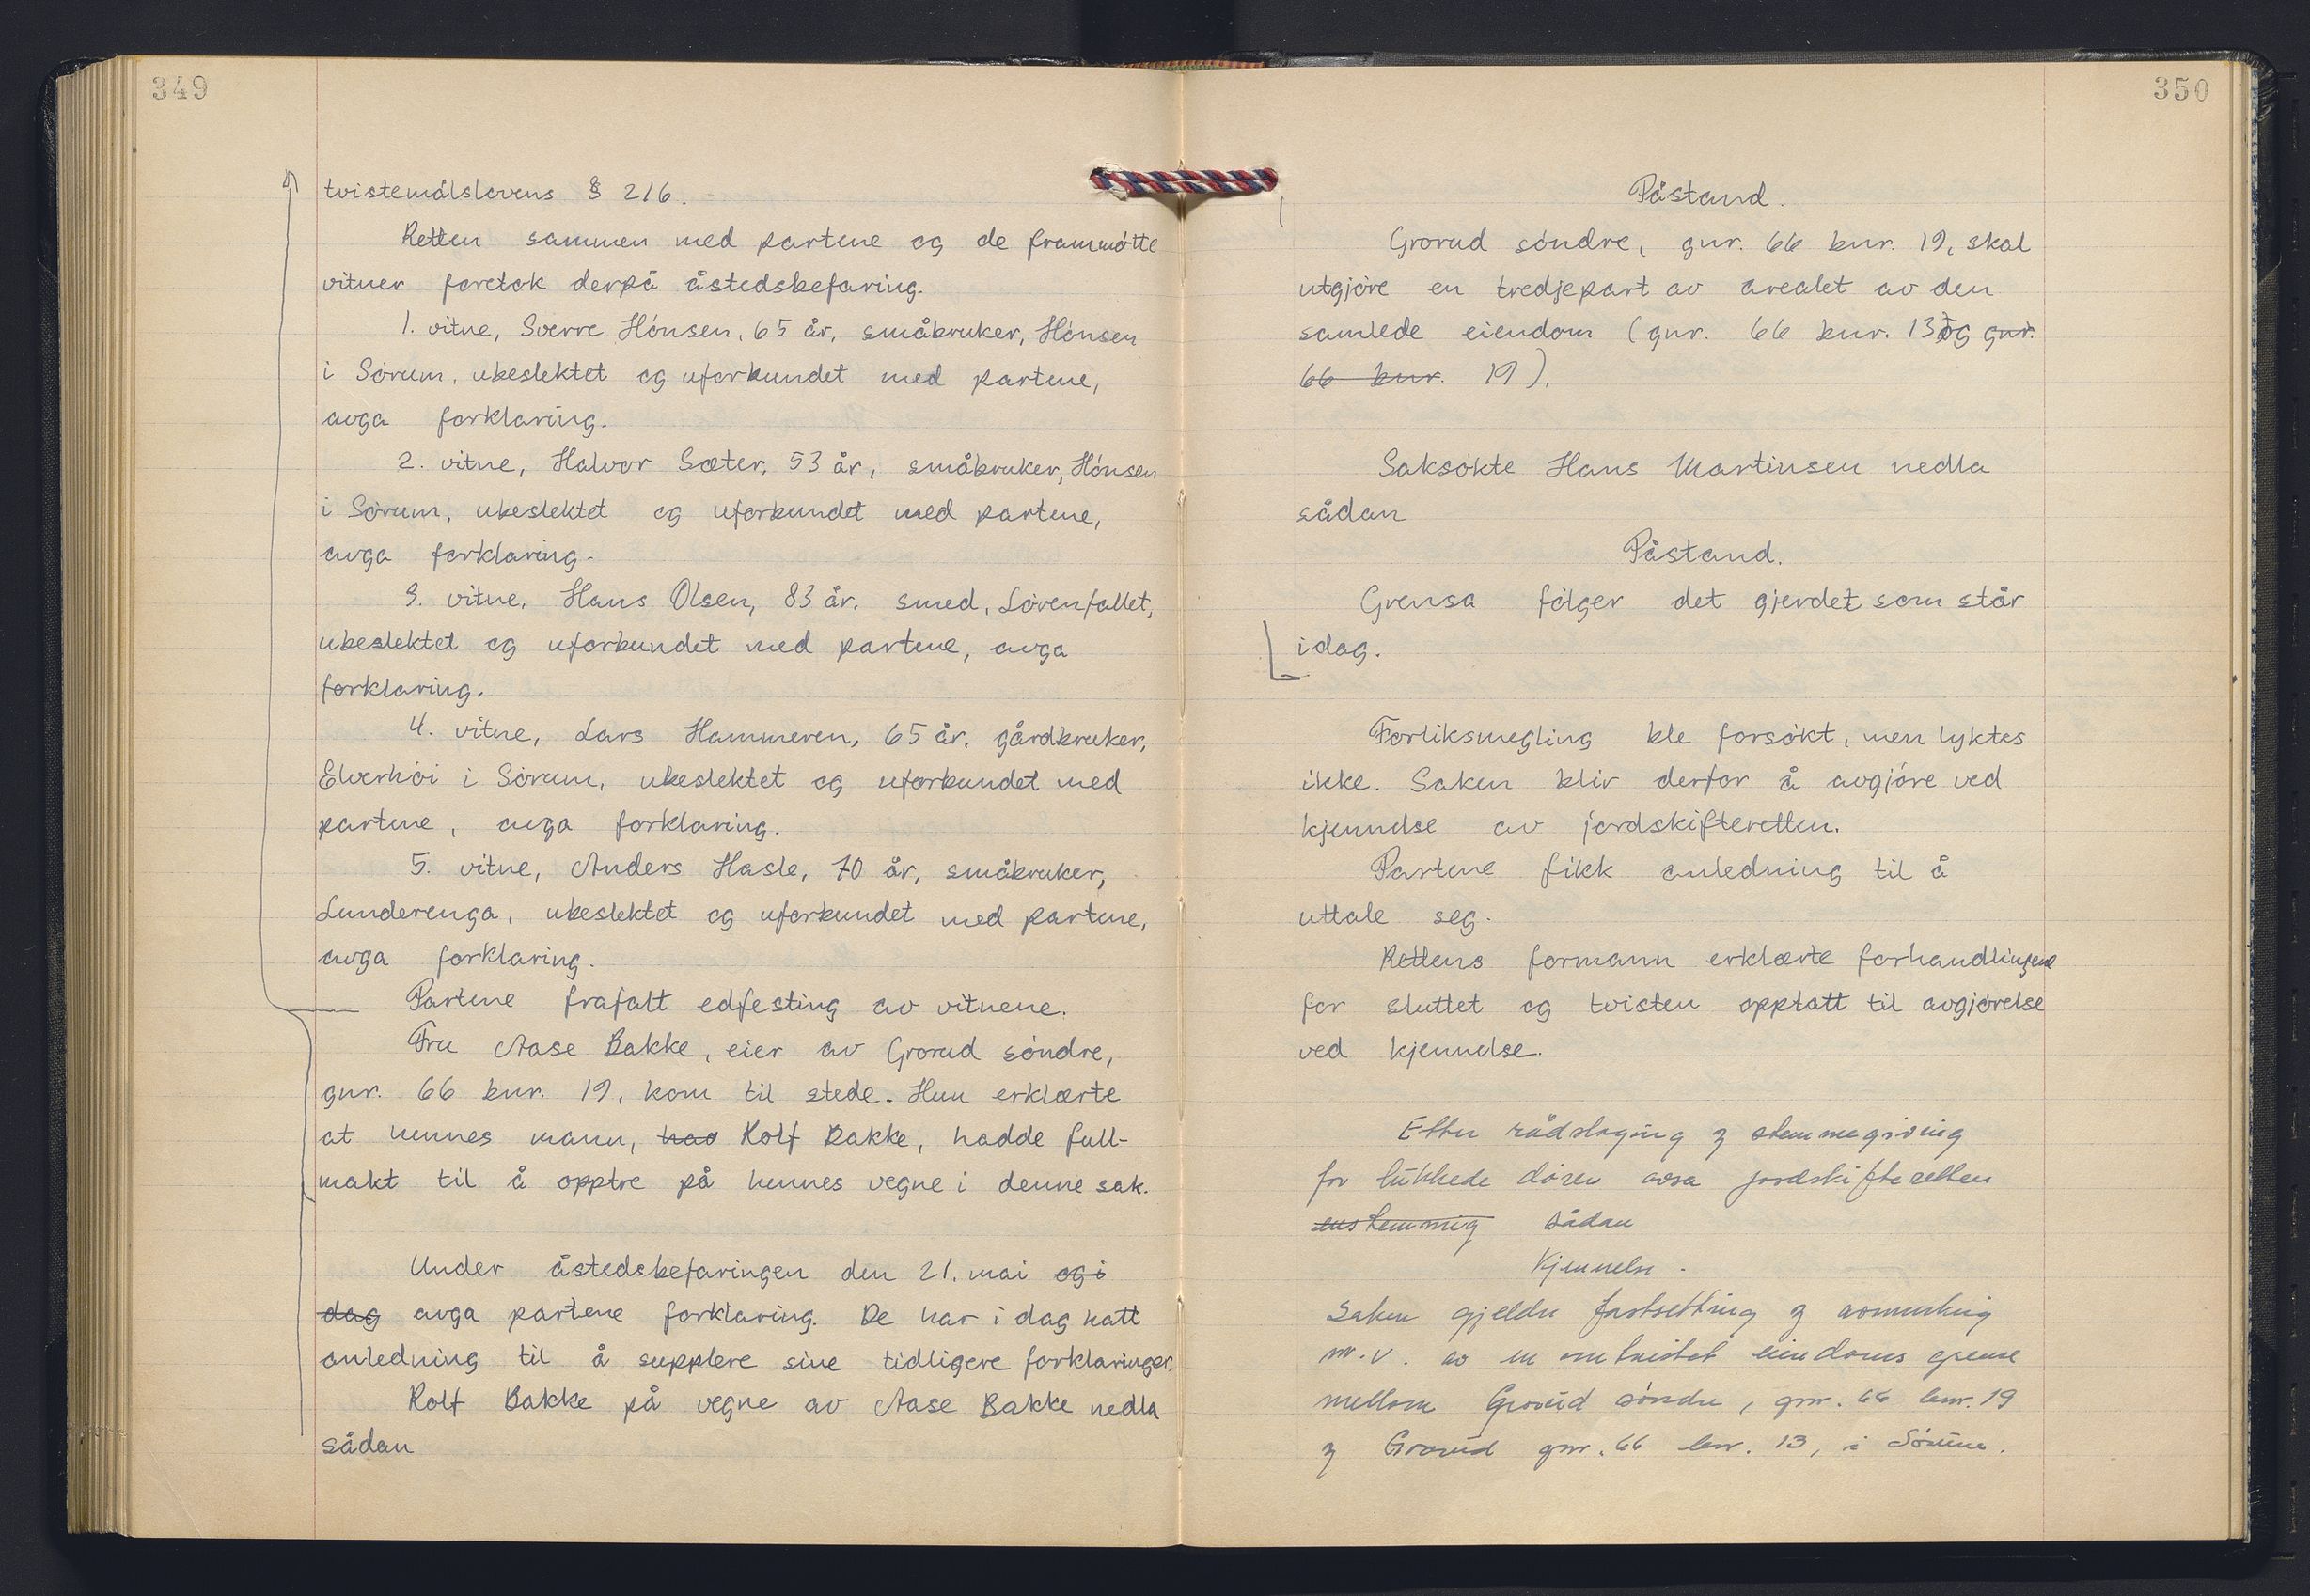 349
tvistemålslovens § 216.
Retten sammen med partene og de frammøtte
vitner foretok derpå åstedsbefaring.
1. vitne, Sverre Hónsen, 65 år, småbruker, Hónsen
i Sórum, ubeslektet og uforbundet med partene,
avga forklaring.
2. vitne, Halvor Sæter, 53 år, småbruker, Hónsen
i Sórum, ubeslektet og uforbundet med partene,
avga forklaring.
3. vitne, Hans Olsen, 83 år, smed, Lóvenfallet,
ubeslektet og uforbundet med partene, avga
forklaring.
4. vitne, Lars Hammeren, 65 år, gårdbruker,
Elverhói i Sórum, ubeslektet og uforbundet med
partene, avga forklaring.
5. vitne, Anders Hasle, 70 år, småbruker,
Lunderenga, ubeslektet og uforbundet med partene,
avga forklaring.
Partene frafalt edfesting av vitnene.
Fru Aase Bakke, eier av Grorud sóndre,
gnr. 66 bnr. 19, kom til stede. Hun erklærte
at hennes mann, hao Rolf Bakke, hadde full-
makt til å opptre på hennes vegne i denne sak.
Under åstedsbefaringen den 21. mai og i
dag avga partene forklaring. De har i dag hatt
anledning til å supplere sine tidligere forklaringer.
Rolf Bakke på vegne av Aase Bakke nedla
sådan
350
Påstand.
Grorud sóndre, gnr. 66 bnr. 19, skal
utgjóre en tredjepart av arealet av den
samlede eiendom (gnr. 66 bnr. 13 og gnr.
66 bnr. 19).
Saksókte Hans Martinsen nedla
sådan
Påstand.
Grensa fólger det gjerdet som står
i dag.
Forliksmegling ble forsókt, men lyktes
ikke. Saken blir derfor å avgjóre ved
kjennelse av jordskifteretten.
Partene fikk anledning til å
uttale seg.
Rettens formann erklærte forhandlingene
for sluttet og tvisten opptatt til avgjórelse
ved kjennelse.
Etter rådslaging og stemmegiving
for lukkede dórer avsa jordskifteretten
enstemmig sådan
Kjennelse.
Saken gjelder fastsetting og avmerking
m.v. av en omtvistet eiendoms grense
mellom Grorud sóndre, gnr. 66 bnr. 19
og Grorud gnr. 66 bnr. 13, i Sórum.